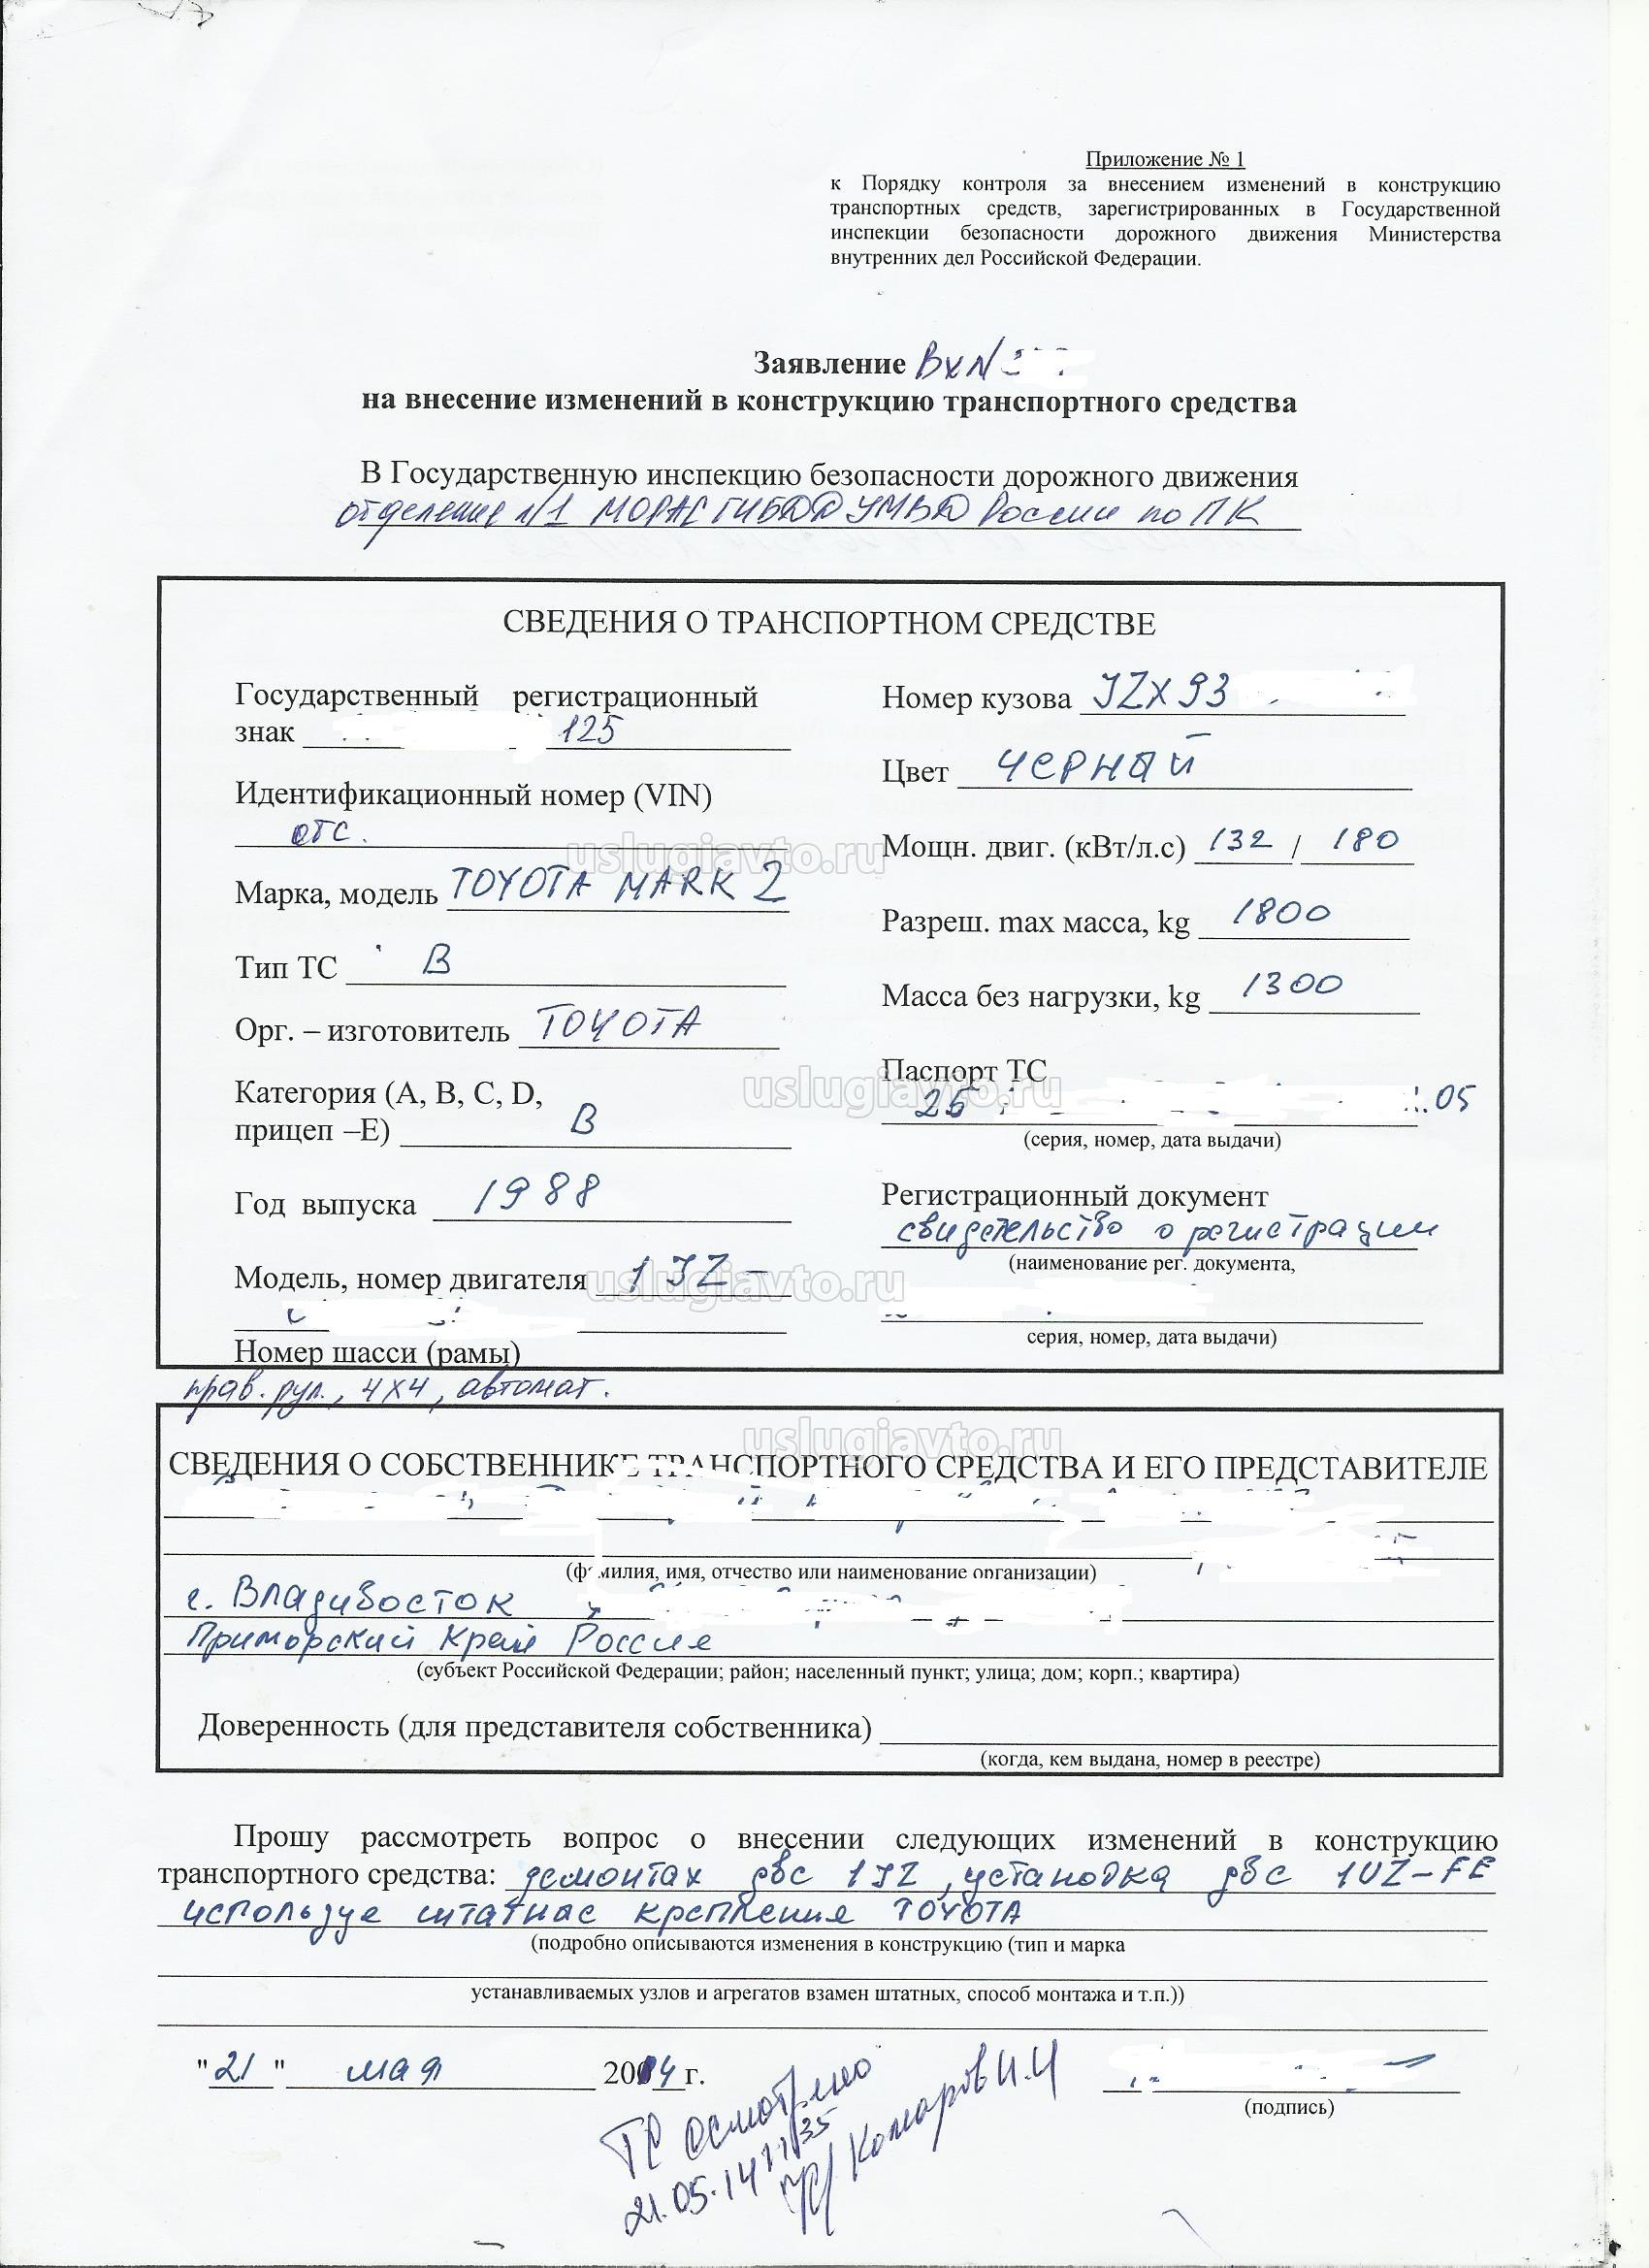 Приложение № 1
к Порядку контроля за внесением изменений в конструкцию
транспортных средств, зарегистрированных в Государственной
инспекции безопасности дорожного движения Министерства
внутренних дел Российской Федерации.
Заявление Вх N
на внесение изменений в конструкцию транспортного средства
В Государственную инспекцию безопасности дорожного движения
отделение N1 МОРАС ГИБДД УМВД России по ПК
СВЕДЕНИЯ О ТРАНСПОРТНОМ СРЕДСТВЕ
Государственный регистрационный
знак 125
Идентификационный номер (VIN)
отс.
Марка, модель TOYOTA MARK 2
Тип ТС B
Орг. – изготовитель TOYOTA
Категория (A, B, C, D,
прицеп –E) B
Год выпуска 1988
Модель, номер двигателя 1JZ-
Номер шасси (рамы)
прав. рул., 4x4, автомат.
Номер кузова JZX93
Цвет ЧЕРНЫЙ
Мощн. двиг. (кВт/л.с) 132 / 180
Разреш. max масса, kg 1800
Масса без нагрузки, kg 1300
Паспорт ТС
25 .05
(серия, номер, дата выдачи)
Регистрационный документ
свидетельство о регистрации
(наименование рег. документа,
серия, номер, дата выдачи)
СВЕДЕНИЯ О СОБСТВЕННИКЕ ТРАНСПОРТНОГО СРЕДСТВА И ЕГО ПРЕДСТАВИТЕЛЕ
(фамилия, имя, отчество или наименование организации)
г. Владивосток
Приморский Край Россия
(субъект Российской Федерации; район; населенный пункт; улица; дом; корп.; квартира)
Доверенность (для представителя собственника)
(когда, кем выдана, номер в реестре)
Прошу рассмотреть вопрос о внесении следующих изменений в конструкцию
транспортного средства: демонтаж двс 1JZ, установка двс 1UZ-FE
используе штатнас крепления TOYOTA
(подробно описываются изменения в конструкцию (тип и марка
устанавливаемых узлов и агрегатов взамен штатных, способ монтажа и т.п.))
"21" мая 2014 г.
(подпись)
ТС осмотрено
21.05.14 11 35
Комаров И.И
uslugiavto.ru
uslugiavto.ru
uslugiavto.ru
uslugiavto.ru